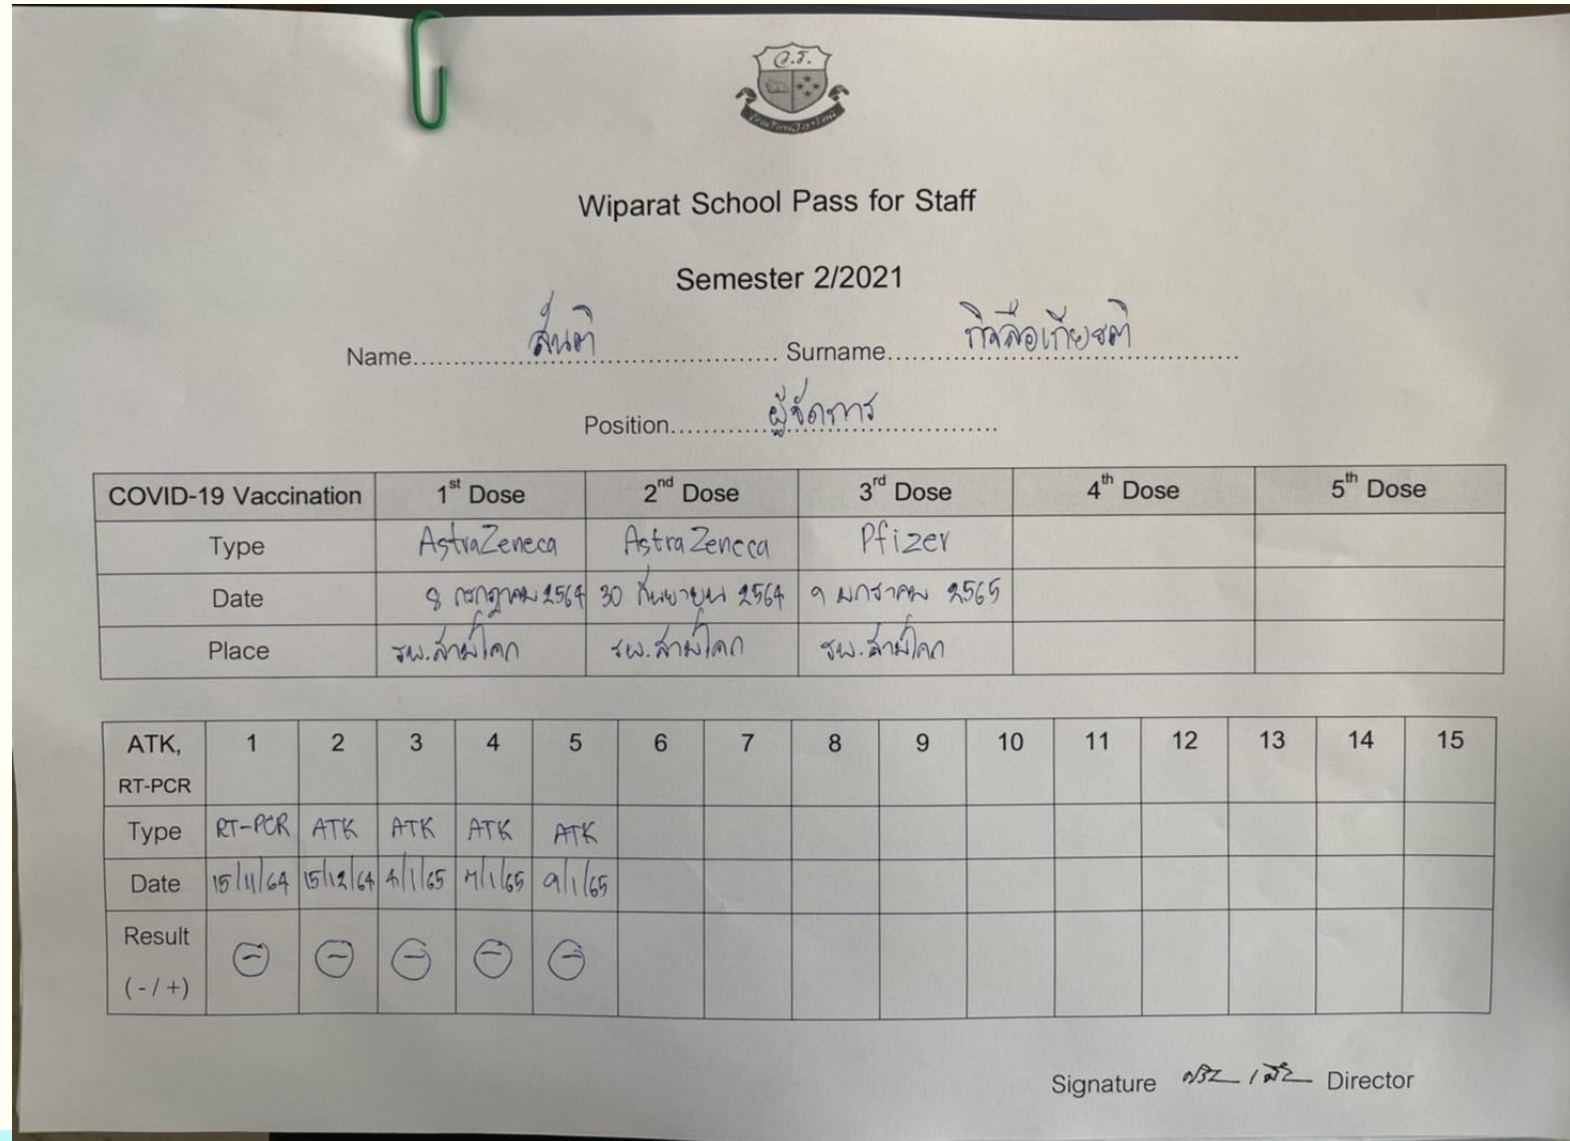 ว.ร.
Wiparat School Pass for Staff
Semester 2/2021
Name.....สันติ..... Surname.....กิจลือเกียรติ.....
Position.....ผู้จัดการ.....
COVID-19 Vaccination 1st Dose 2nd Dose 3rd Dose 4th Dose 5th Dose
Type AstraZeneca AstraZeneca Pfizer
Date 8 กรกฎาคม 2564 30 กันยายน 2564 9 มกราคม 2565
Place รพ.สามโคก รพ.สามโคก รพ.สามโคก
ATK, 1 2 3 4 5 6 7 8 9 10 11 12 13 14 15
RT-PCR
Type RT-PCR ATK ATK ATK ATK
Date 15/11/64 15/12/64 4/1/65 7/1/65 9/1/65
Result - - - - -
( - / +)
Signature Director